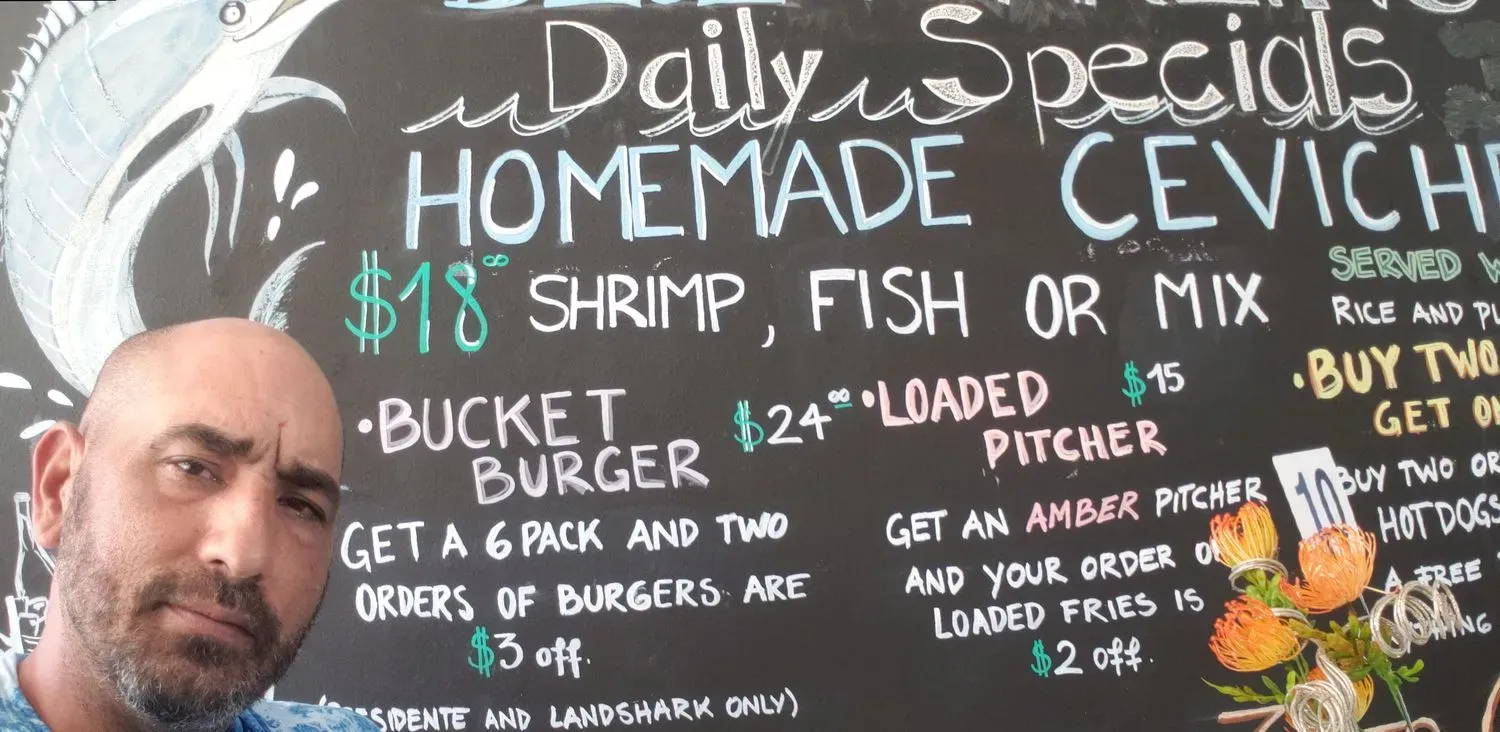 Daily Specials
HOMEMADE CEVICH
$18⁰⁰ SHRIMP, FISH OR MIX
SERVED
RICE AND
• BUCKET BURGER $24⁰⁰
GET A 6 PACK AND TWO
ORDERS OF BURGERS ARE
$3 off.
AND LANDSHARK ONLY)
• LOADED PITCHER $15
GET AN AMBER PITCHER
AND YOUR ORDER
LOADED FRIES IS
$2 off.
• BUY TWO
GET
10
BUY TWO
HOTDOGS
A FREE